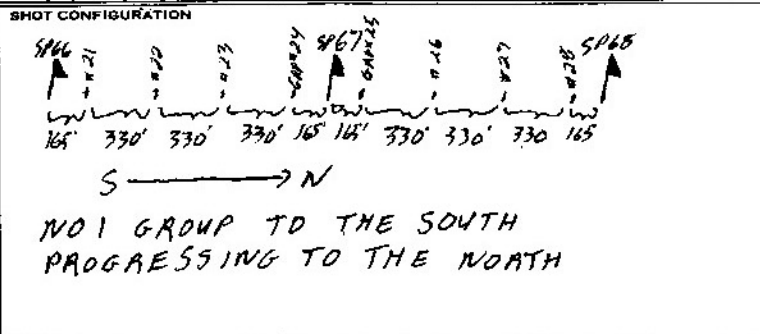 SHOT CONFIGURATION
SP66 #21 #22 #23 GAP#24 SP67 GAP#25 #26 #27 #28 SP68
165' 330' 330' 330' 165' 165' 330' 330' 330 165
S N
NO 1 GROUP TO THE SOUTH
PROGRESSING TO THE NORTH